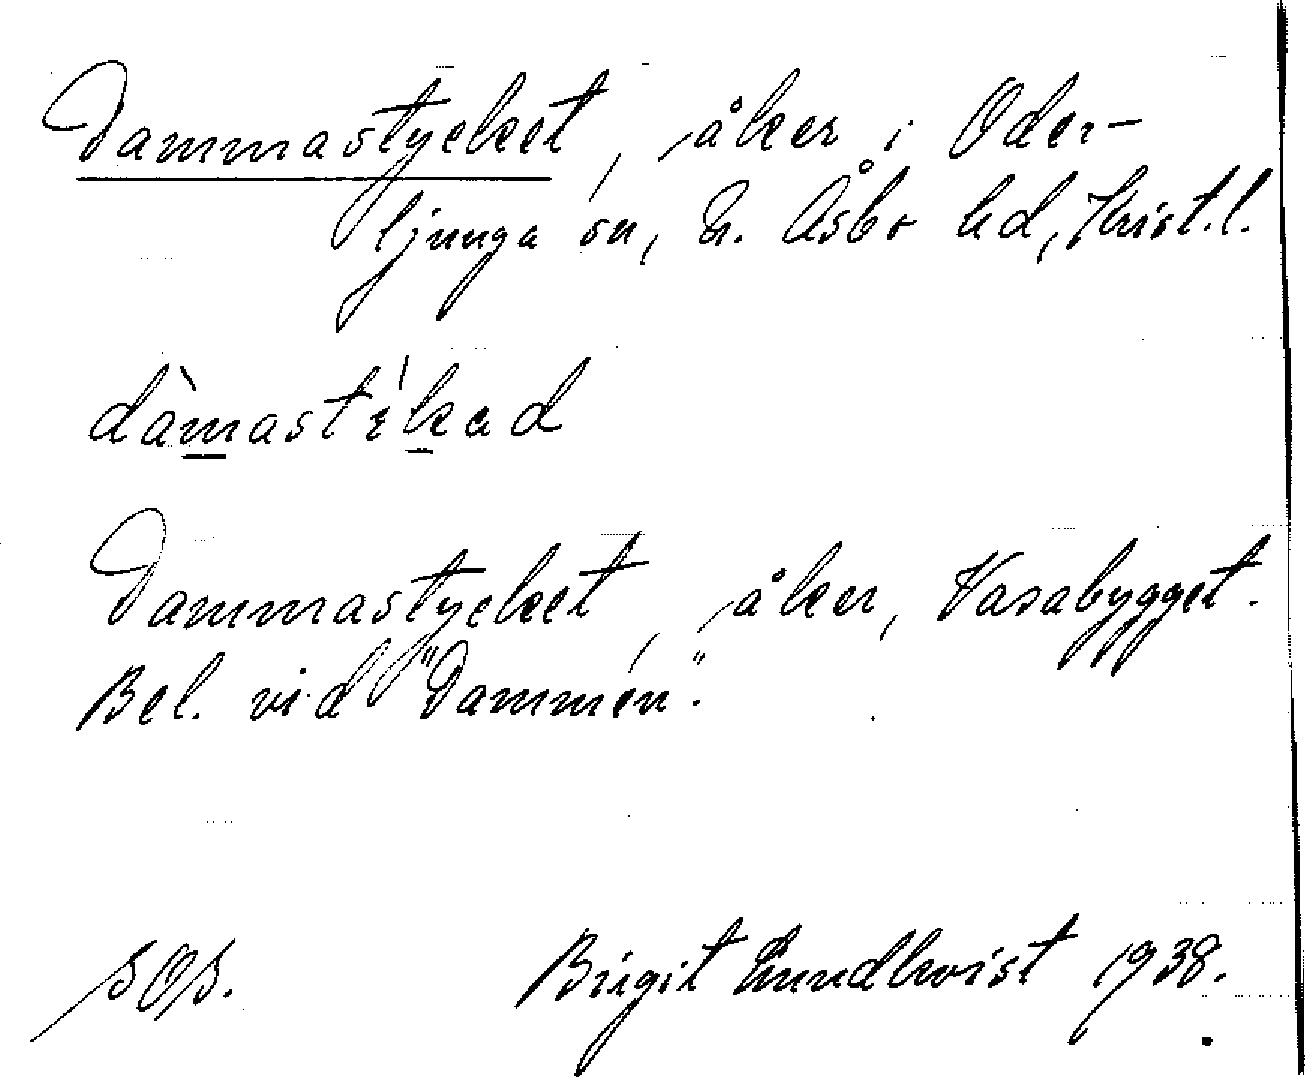 Dammastycket, åker i Oder-
ljunga sn, N. Åsbo hd, Krist.l.
dàmastìkad
Dammastycket, åker, Vasabygget.
Bel. vid "Dammen".
SOS. Birgit Lundkvist 1938.